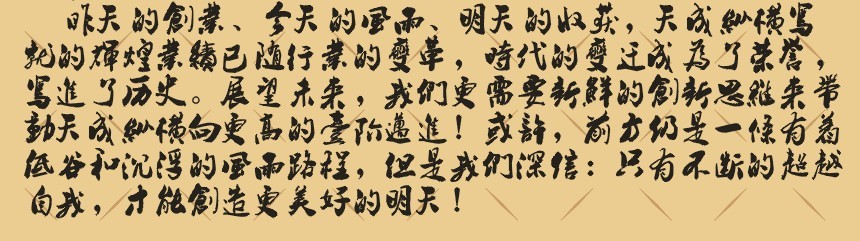 昨天的創業、今天的風雨、明天的收获，天成縱橫寫
就的輝煌業績已随行業的變革，時代的變迁成為了荣誉，
寫進了历史。展望未来，我们更需要新鮮的創新思維来带
動天成縱横向更高的臺阶邁進！或許，前方仍是一條有着
低谷和沉浮的風雨路程，但是我們深信：只有不断的超越
自我，才能創造更美好的明天！